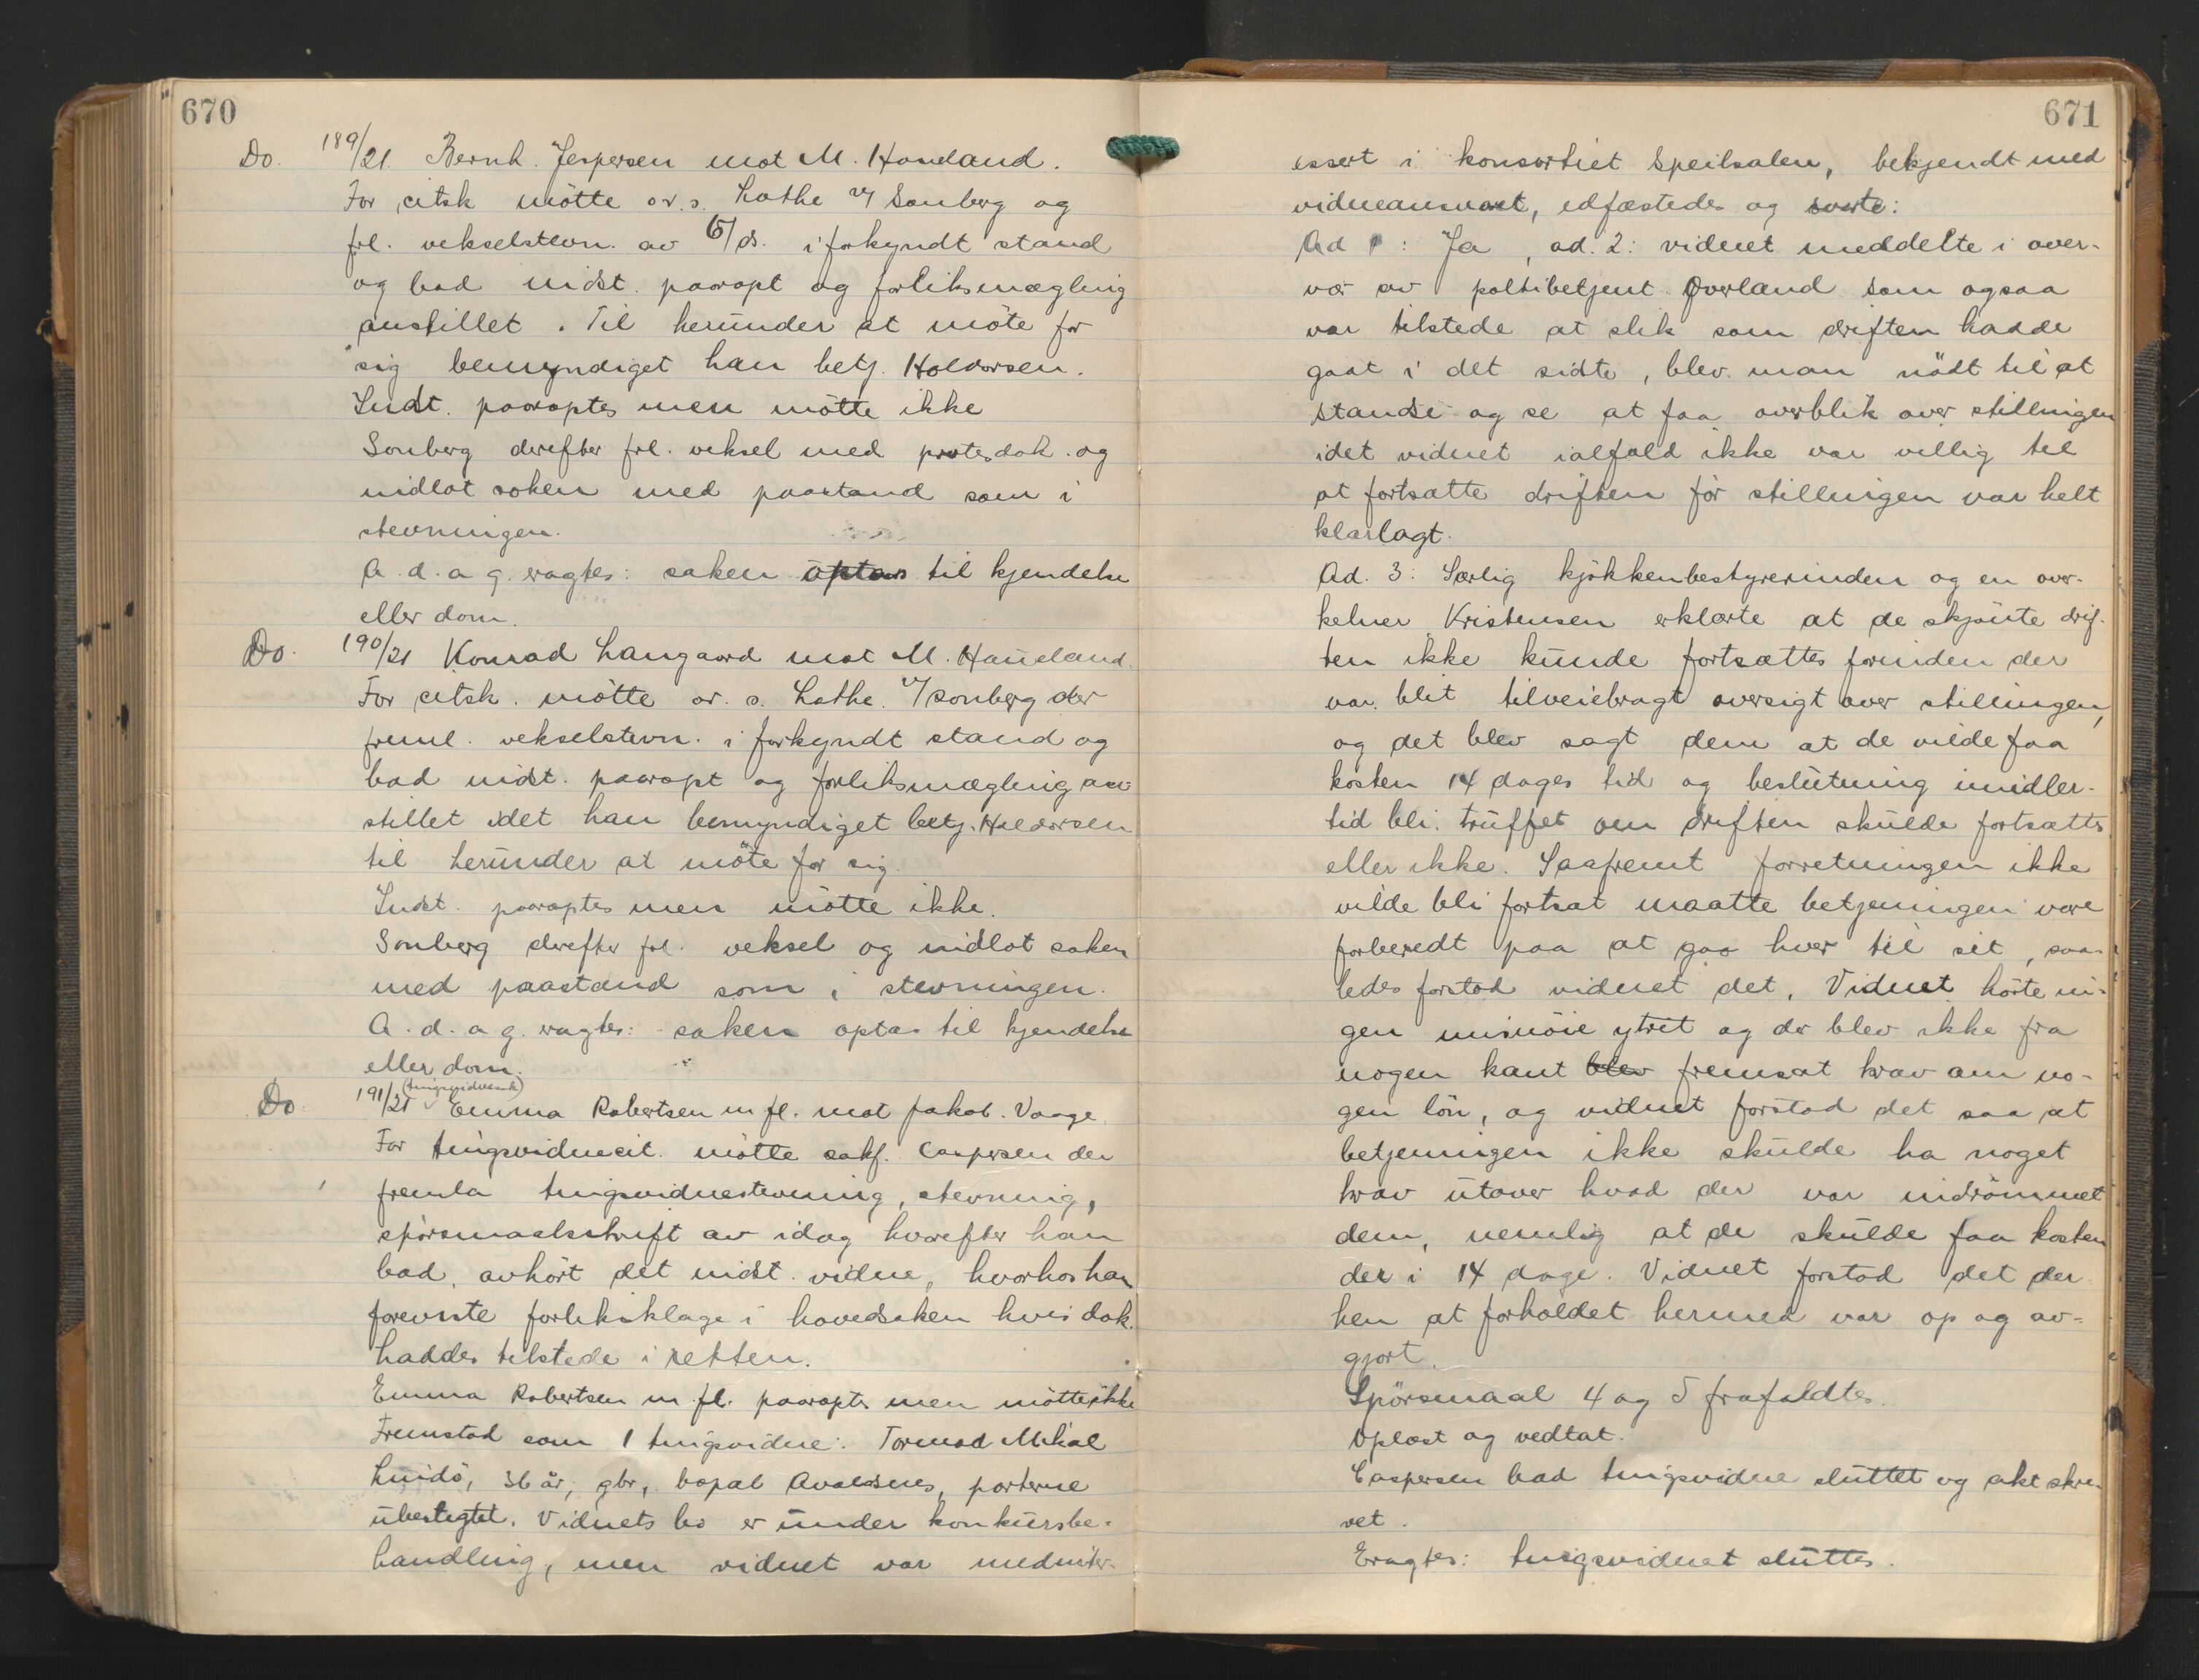 670
Do. 189/21. Bernh. Jespersen mot M. Haneland.
For citsk møtte or.s. Lothe v/ Sonberg og
frl. vekselstevn. av 6/ds. i forkyndt stand
og bad indst. paaropt og forliksmægling
anstillet. Til herunder at møte for
sig bemyndiget han betj. Haldorsen.
Indst. paaroptes men møtte ikke
Sonberg derefter frl. veksel med protesdok. og
indlot saken med paastand som i
stevningen.
A. d. a g. eragtes: saken optas til kjendelse
eller dom.
Do. 190/21 Konrad Langaard mot M. Haneland.
For citsk. møtte or. s. Lothe. v/ Sonberg der
freml. vekselstevn. i forkyndt stand og
bad indst. paaropt og forliksmægling an
stillet idet han bemyndiget betj. Haldorsen
til herunder at møte for sig.
Indst. paaroptes men møtte ikke.
Sonberg derefter frl. veksel og indlot saken
med paastand som i stevningen.
A. d. a g. eragtes: saken optas til kjendelse
eller dom.
Do 191/21 (tingsvidnesak) Emma Robertsen m fl. mot Jakob. Vaage.
For tingsvidnecit. møtte sakf. Caspersen der
fremla tingsvidnestevning, stevning,
spørsmaalsskrift av idag hvorefter han
bad, avhørt det indst. vidne, hvorhos han
foreviste forliksklage i hovedsaken hvis dok.
haddes tilstede i retten.
Emma Robertsen m. fl. paaroptes men møtte ikke
Fremstod som 1 tingsvidne: Tormod Mikal
Lindø, 36 år, gbr, bopæl Avaldsnes, parterne
ubeslegtet. Vidnets bo er under konkursbe-
handling, men vidnet var medinter-
671
essert i konsortiet Speilsalen, bekjendt med
vidneansvaret, edfæstedes og svarte:
Ad 1: Ja, ad. 2: vidnet meddelte i over-
vær av politibetjent Øverland som ogsaa
var tilstede at slik som driften hadde
gaat i det sidte, blev man nødt til at
standse og se at faa overblik over stillingen
idet vidnet ialfald ikke var villig til
at fortsætte driften før stillingen var helt
klarlagt.
Ad. 3: Særlig kjøkkenbestyrerinden og en over-
kelner Kristensen erklærte at de skjønte drif-
ten ikke kunde fortsættes forinden der
var blit tilveiebragt oversigt over stillingen,
og det blev sagt dem at de vilde faa
kosten 14 dages tid og beslutning imidler-
tid bli truffet om driften skulde fortsættes
eller ikke. Saafremt forretningen ikke
vilde bli fortsat maatte betjeningen være
forberedt paa at gaa hver til sit, saa-
ledes forstod vidnet det. Vidnet hørte in-
gen misnøie ytret og der blev ikke fra
nogen kant blev fremsat krav om no-
gen løn, og vidnet forstod det saa at
betjeningen ikke skulde ha noget
krav utover hvad der var indrømmet
dem, nemlig at de skulde faa kosten
der i 14 dage. Vidnet forstod det der
hen at forholdet hermed var op og av-
gjort.
Spørsmaal 4 og 5 frafaldtes.
Oplæst og vedtat.
Caspersen bad tingsvidne sluttet og akt skre
vet.
Eragtes: tingsvidnet sluttes.